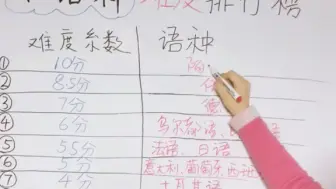 小语种难度排行榜
难度系数 语种
① 10分
② 8.5分
③ 7分 德
④ 6分 乌尔都语、
⑤ 5.5分 法语、日语
⑥ 5分 意大利、葡萄牙、西班
⑦ 4分 土耳其语